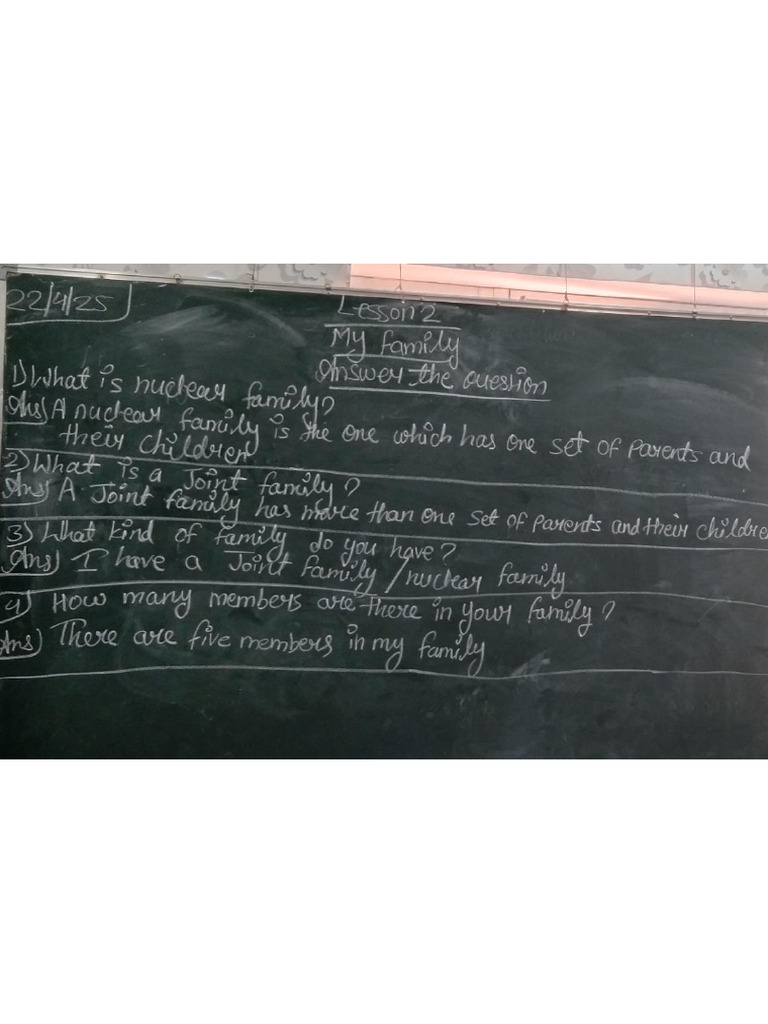 22/4/25
Lesson 2
My family
Answer the question
1) What is nuclear family?
Ans) A nuclear family is the one which has one set of parents and
their children
2) What is a Joint family?
Ans) A Joint family has more than one set of parents and their children
3) What kind of family do you have?
Ans) I have a Joint family / nuclear family
4) How many members are there in your family?
Ans) There are five members in my family